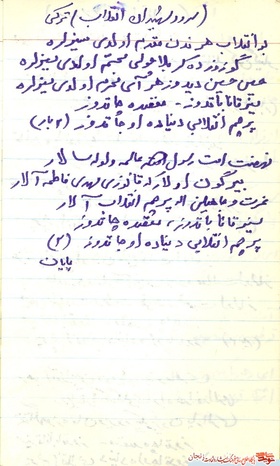 (سرود شهیدان انقلاب) ترکی
بو انقلاب هر زدن مقدم اولدی سیزلره
گوروز ده کربلا محکم اولدی سیزلره
حسن حسین دیدوز هر آیی محرم اولدی سیزلره
سیز قانا باتدوز - مقصده چاتدوز
پرچم انقلابی دنیاده اوجاتدوز (۲ بار)
نهضت امت رسول الله عالمه ولوله سالار
بیر گون اولار که قانوزی مهدی فاطمه آلار
عزت و ماهیلن اله پرچم انقلاب آلار
سیز قانا باتدوز، مقصده چاتدوز
پرچم انقلابی دنیاده اوجاتدوز (۲)
پایان